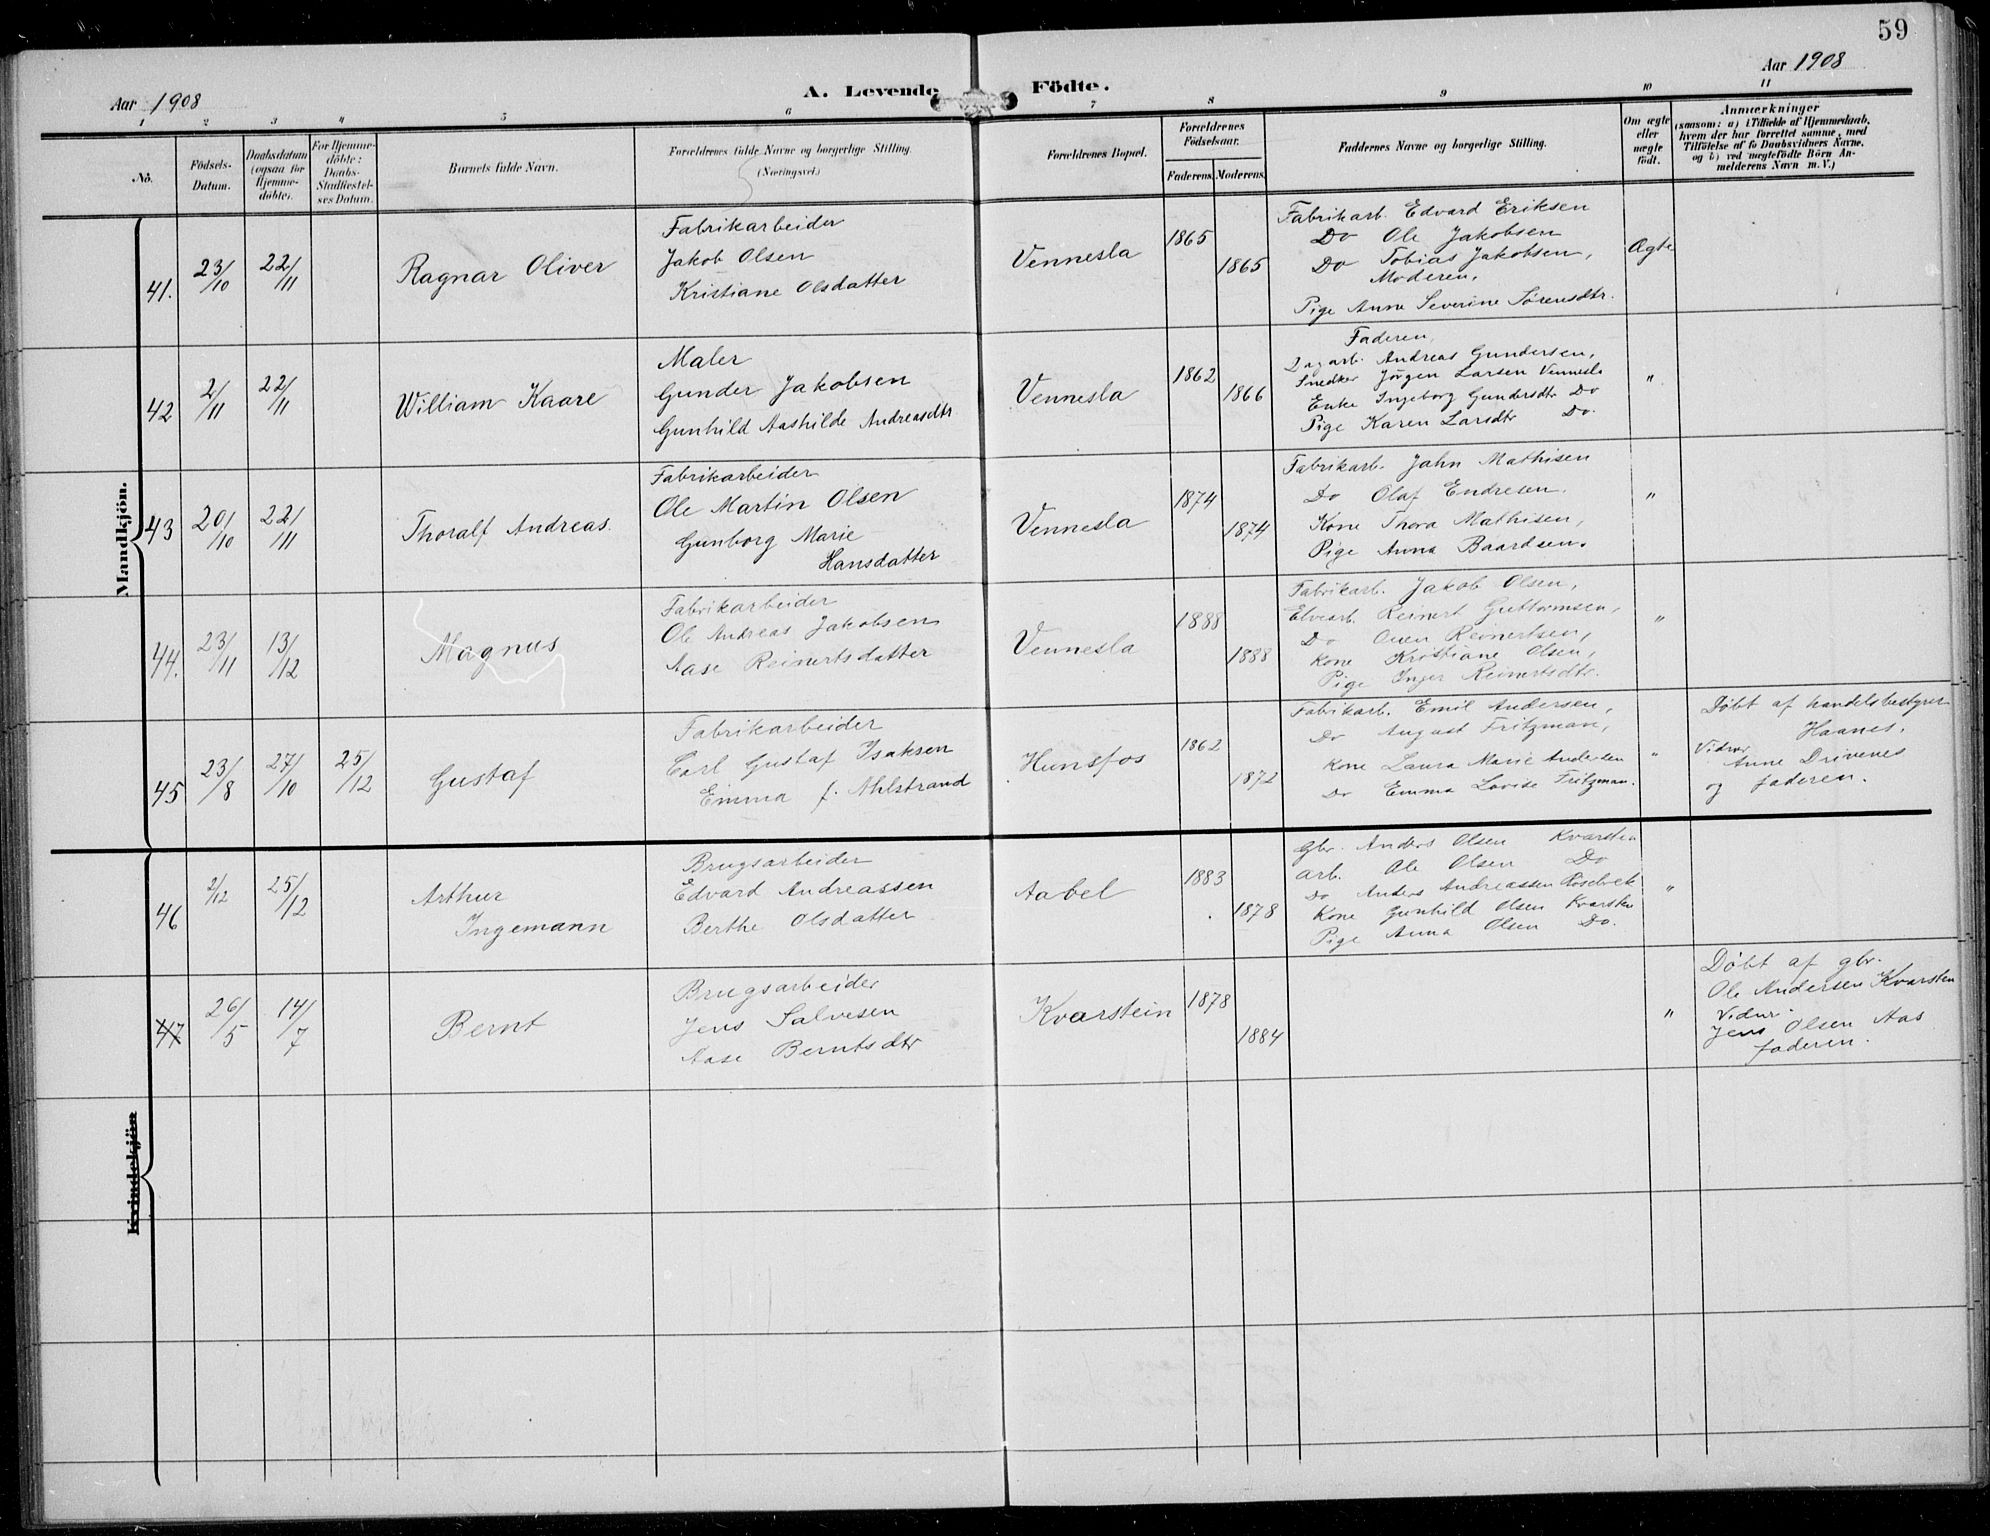 59
Aar 1908
A. Levende Födte.
Aar 1908
1 2 3 4 5 6 7 8 9 10 11
No.
Födsels-
Datum.
Daabsdatum
(ogsaa for
Hjemme-
döbte).
For Hjemme-
döbte:
Daabs-
Stadfæstel-
ses Datum.
Barnets fulde Navn.
Forældrenes fulde Navne og borgerlige Stilling.
(Næringsvei.)
Forældrenes Bopæl.
Forældrenes
Födselsaar.
Faderens. Moderens.
Faddernes Navne og borgerlige Stilling.
Om ægte
eller
uægte
födt.
Anmærkninger
(saasom: a) i Tilfælde af Hjemmedaab,
hvem der har forrettet samme, med
Tilföielse af to Daabsvidners Navne,
og b) ved uægtefödte Börn An-
melderens Navn m. V.)
Mandkjön.
41.
23/10
22/11
Ragnar Oliver
Fabrikarbeider
Jakob Olsen
Kristiane Olsdatter
Vennesla
1865
1865
Fabrikarb. Edvard Eriksen
Do Ole Jakobsen
Do Tobias Jakobsen,
Moderen,
Pige Anne Severine Sørensdtr.
Ægte
42
2/11
22/11
William Kaare
Maler
Gunder Jakobsen
Gunhild Aashilde Andreasdtr
Vennesla
1862
1866
Faderen,
Dagarb. Andreas Gundersen,
Snedker Jörgen Larsen Vennesla
Enke Ingeborg Gundersdtr Do
Pige Karen Larsdtr Do.
"
43
20/10
22/11
Thoralf Andreas.
Fabrikarbeider
Ole Martin Olsen
Gunborg Marie
Hansdatter
Vennesla
1874
1874
Fabrikarb. John Mathisen
Do Olaf Endresen.
Kone Thora Mathisen,
Pige Anna Baardsen.
"
44.
23/11
13/12
Magnus
Fabrikarbeider
Ole Andreas Jakobsen
Aase Reinertsdatter
Vennesla
1888
1888
Fabrikarb. Jakob Olsen,
Elvearb. Reinert Guttormsen,
Do Owen Reinertsen,
Kone Kristiane Olsen,
Pige Inger Reinertsdtr.
"
45
23/8
27/10
25/12
Gustaf
Fabrikarbeider
Carl Gustaf Isaksen
Emma f. Ahlstrand
Hunsfos
1862
1872
Fabrikarb. Emil Andersen,
Do August Fritzman,
Kone Laura Marie Andersen
Do Emma Lovise Fritzman.
"
Döbt af handelsbestyrer
Haanes.
Vidner
Anne Drivenes
og faderen.
Kvindekjön
46
2/12
25/12
Arthur
Ingemann
Brugsarbeider
Edvard Andreassen
Berthe Olsdatter
Aabel
1883
1878
Gbr. Anders Olsen Kvarsten
arb. Ole Olsen Do
Do Anders Andreassen
Kone Gunhild Olsen Kvarsten
Pige Anna Olsen Do.
"
47
26/5
14/7
Bernt
Brugsarbeider
Jens Salvesen
Aase Berntsdtr
Kvarstein
1878
1884
"
Döbt af gbr.
Ole Andersen Kvarsten
Vidner
Jens Olsen Aas
faderen.